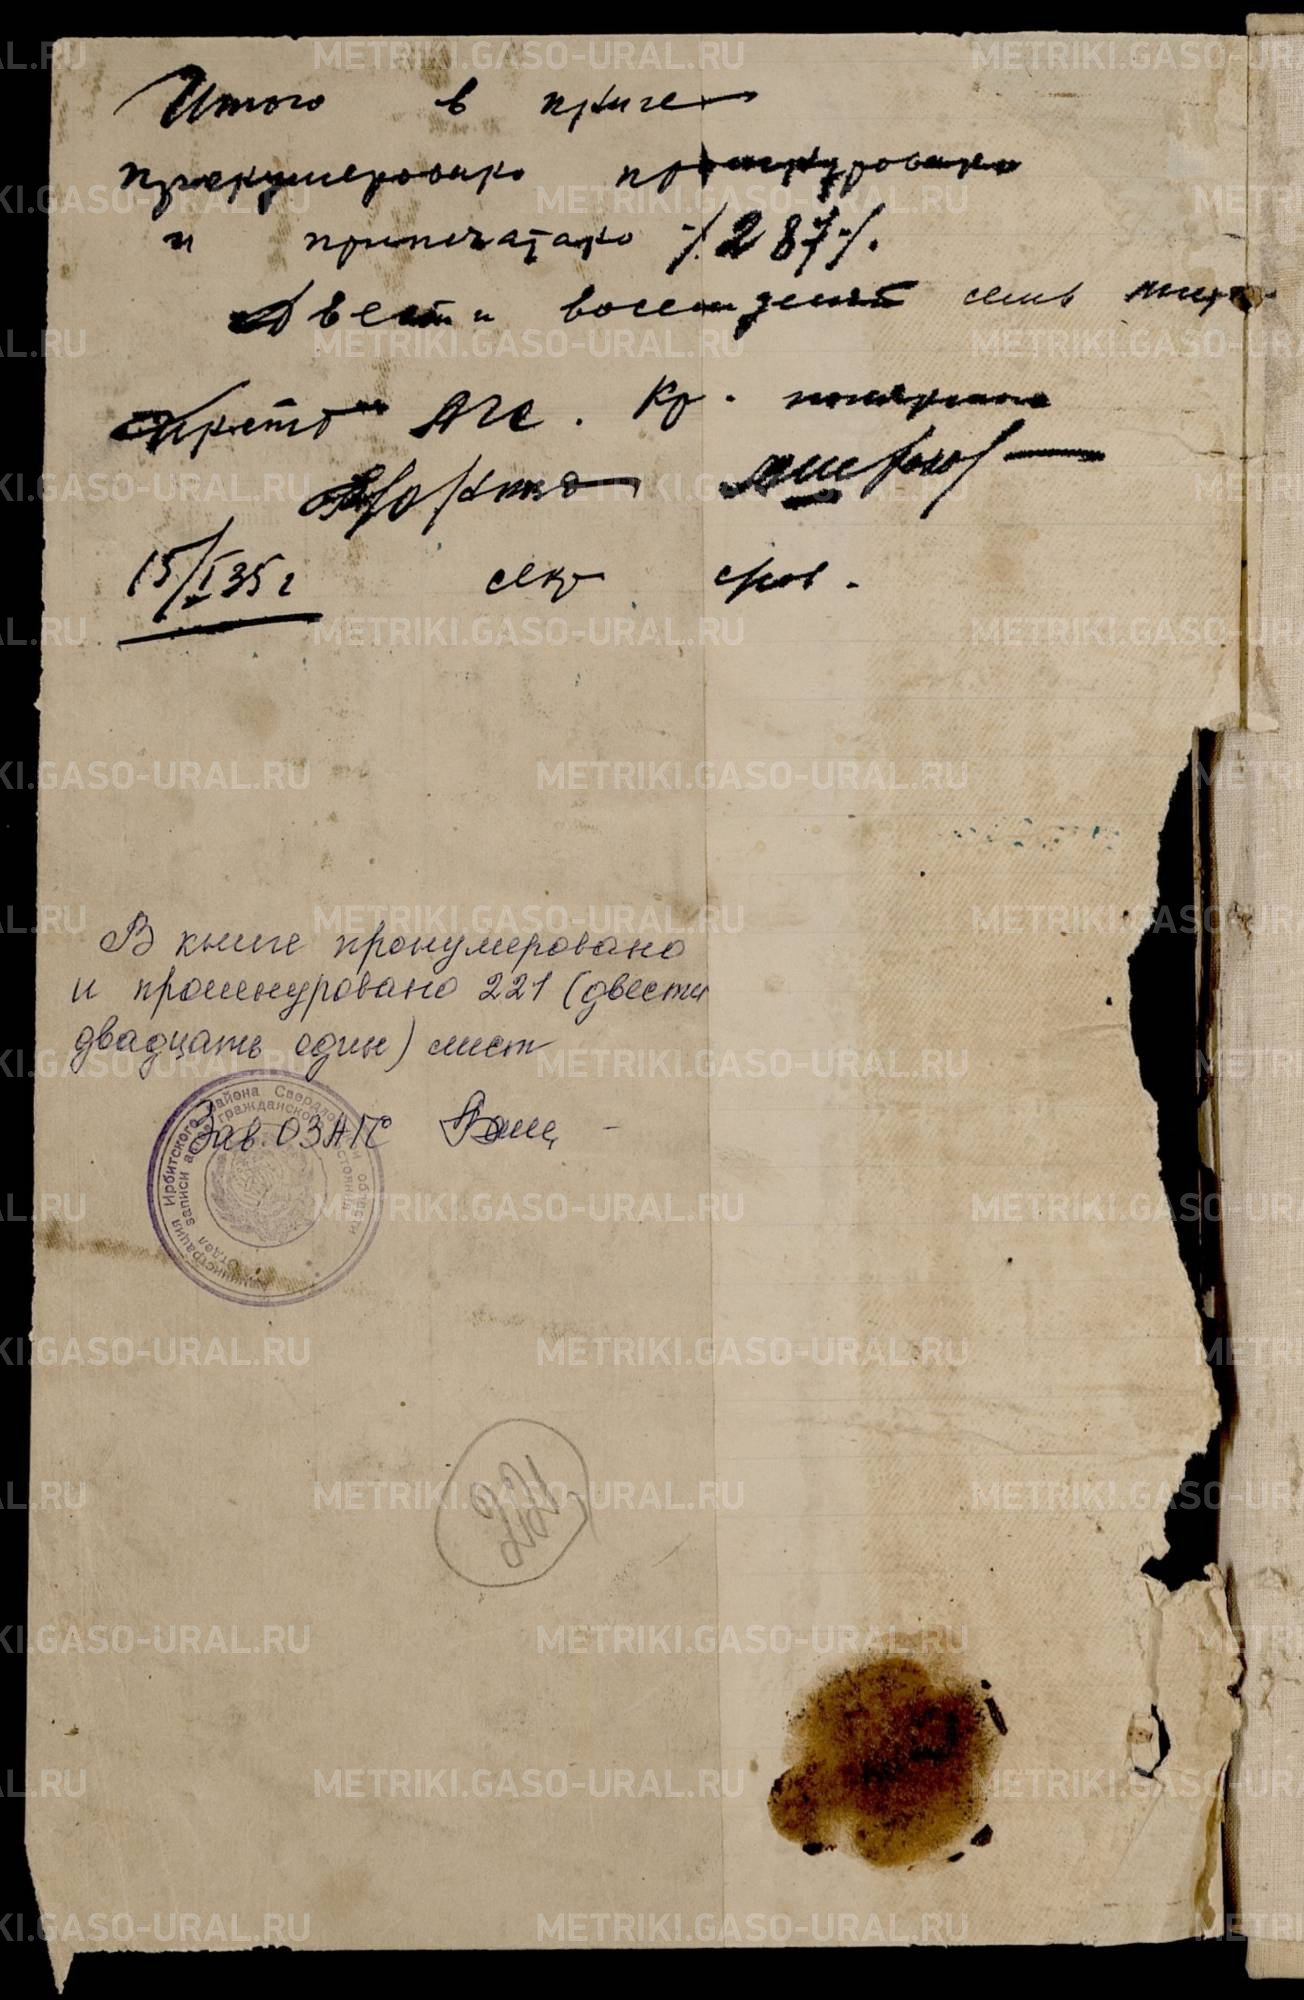 Итого в книге
пронумеровано прошнуровано
и припечатано -/.287/-.
Двести восемдесят семь
АГС. Кр.
15/I 35 г секр
В книге пронумеровано
и прошнуровано 221 (двести
двадцать один) лист
Зав. ОЗАГС
Администрация Ирбитского района Свердловской области
Отдел записи актов гражданского состояния
221
METRIKI.GASO-URAL.RU